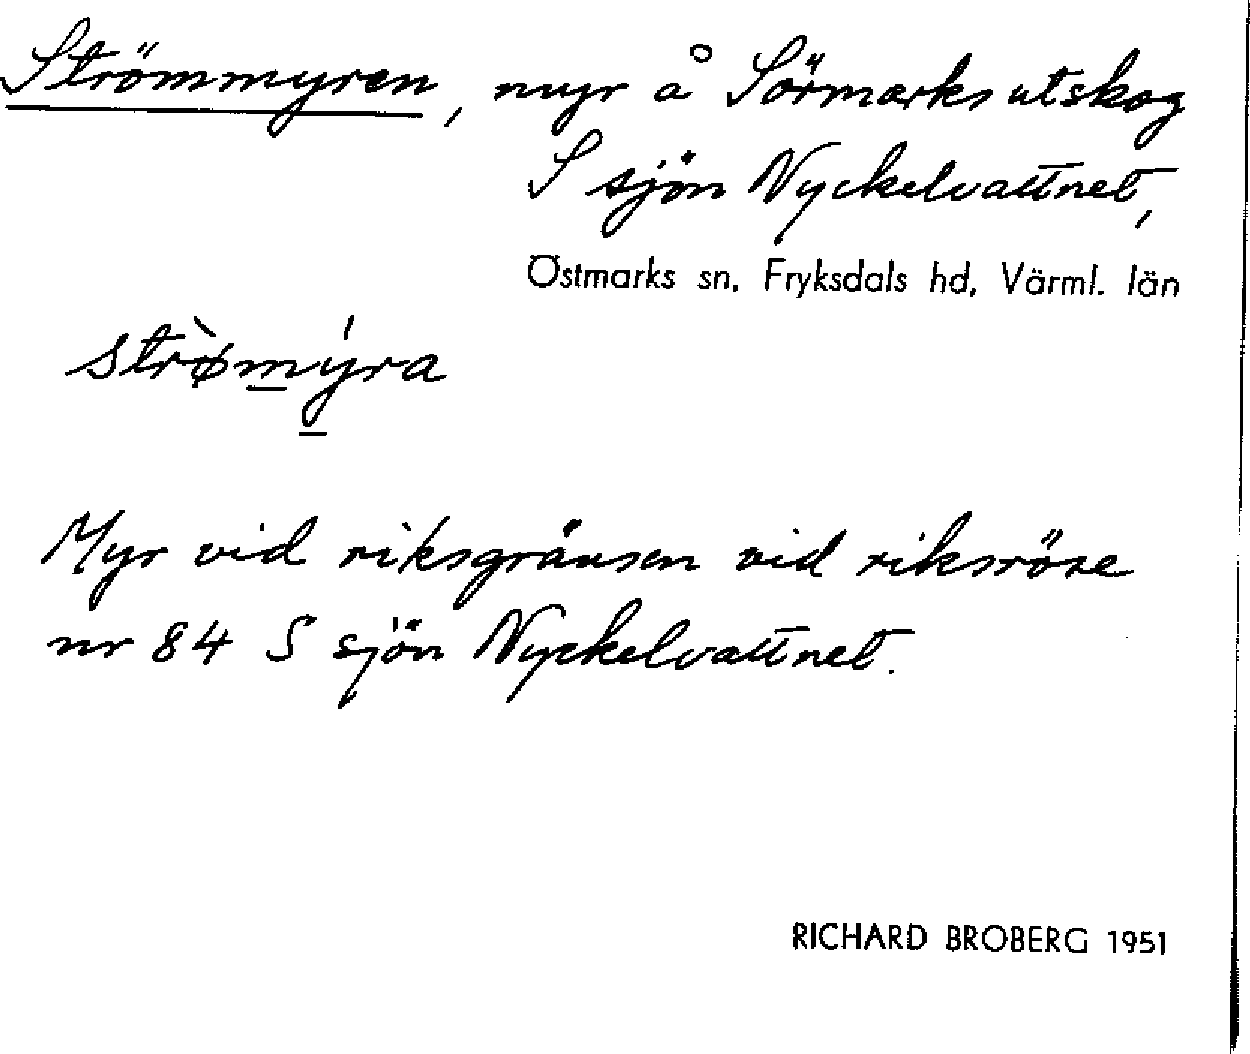 Strömmyren, myr å Sörmarks utskog
S sjön Nyckelvattnet,
Östmarks sn, Fryksdals hd, Värml. län
strø̀m̲ý̲ra
Myr vid riksgränsen vid riksröse
nr 84 S sjön Nyckelvattnet.
RICHARD BROBERG 1951